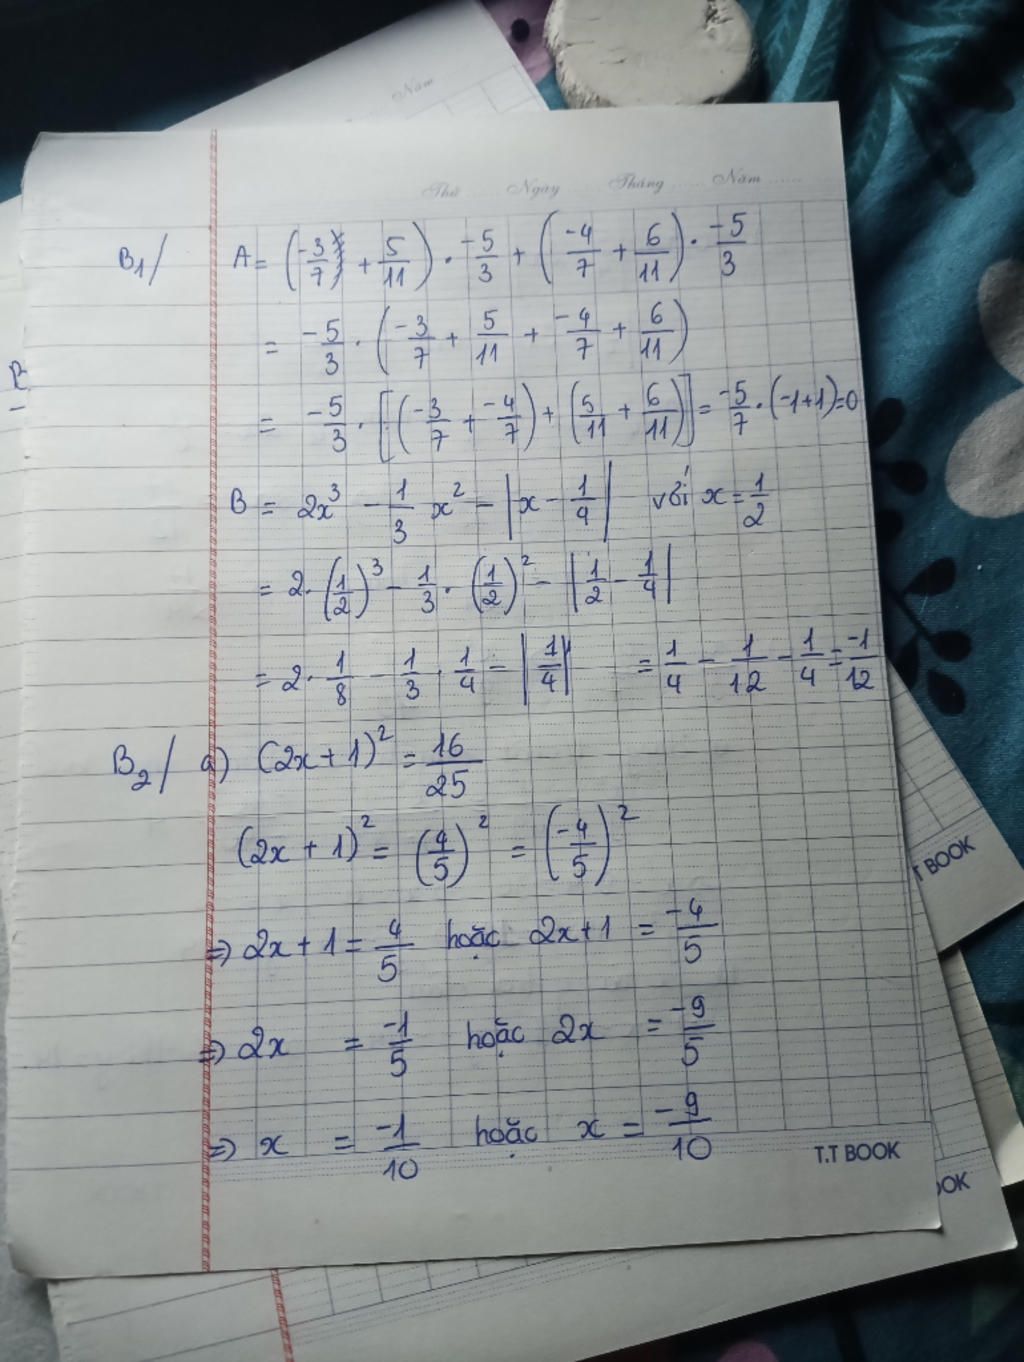 Năm
Thứ ...... Ngày ...... Tháng ...... Năm ......
B1/ A = (-3/7 + 5/11) . -5/3 + (-4/7 + 6/11) . -5/3
= -5/3 . (-3/7 + 5/11 + -4/7 + 6/11)
= -5/3 . [(-3/7 + -4/7) + (5/11 + 6/11)] = -5/7 . (-1+1) = 0
B = 2x³ - 1/3 x² - |x - 1/4| với x = 1/2
= 2 . (1/2)³ - 1/3 . (1/2)² - |1/2 - 1/4|
= 2 . 1/8 - 1/3 . 1/4 - |1/4| = 1/4 - 1/12 - 1/4 = -1/12
B2/ a) (2x+1)² = 16/25
(2x+1)² = (4/5)² = (-4/5)²
=> 2x+1 = 4/5 hoặc 2x+1 = -4/5
=> 2x = -1/5 hoặc 2x = -9/5
=> x = -1/10 hoặc x = -9/10
T.T BOOK
T BOOK
OOK